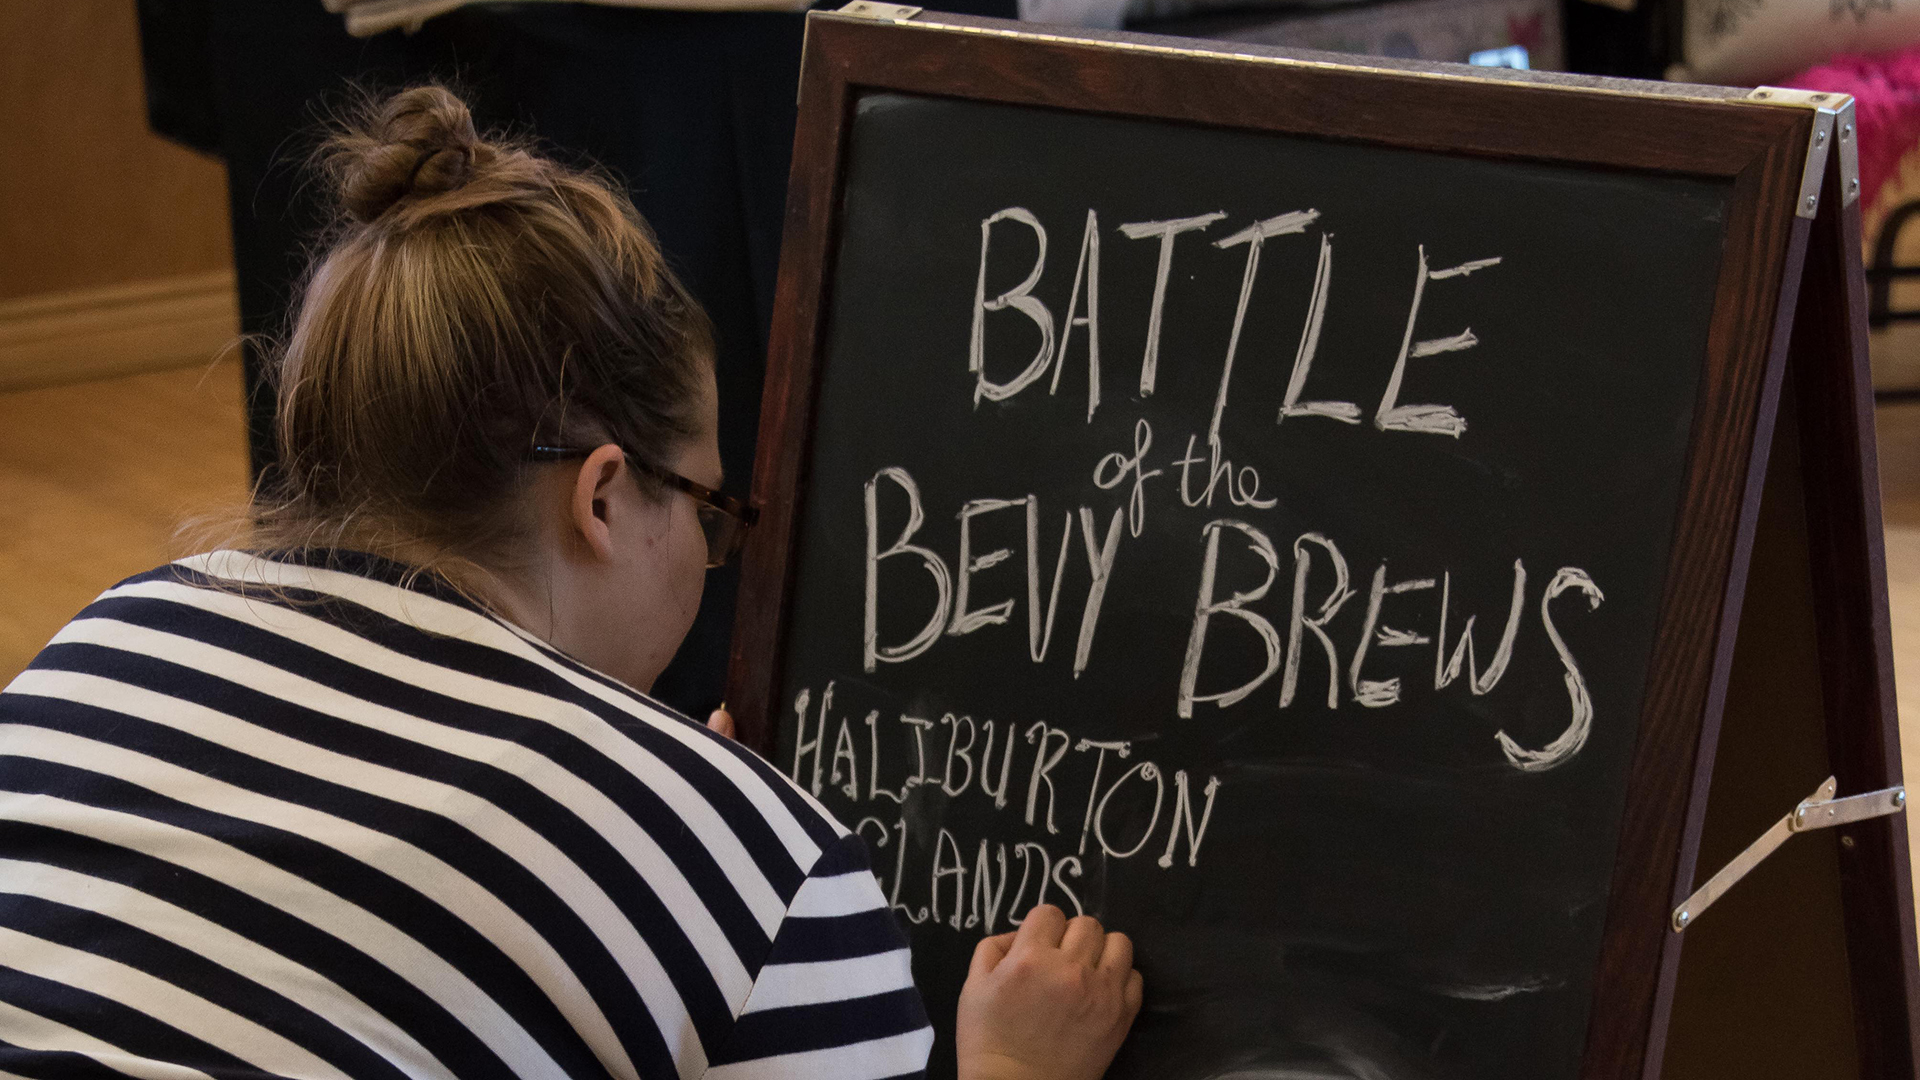 BATTLE
of the
BEVY BREWS
HALIBURTON
LANDS